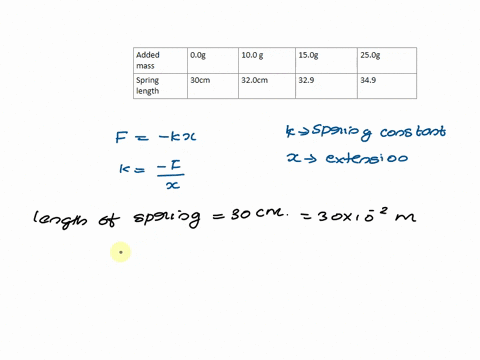 Added mass 0.0g 10.0 g 15.0g 25.0g
Spring length 30cm 32.0cm 32.9 34.9
F = -kx
k → spering constant
k = -F/x
x → extension
length of spering = 30 cm. = 30×10⁻² m